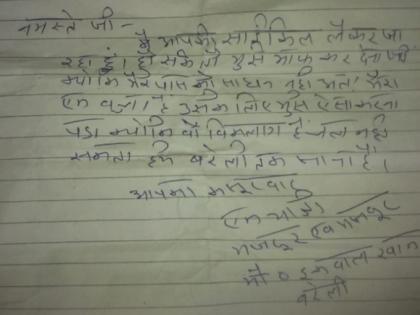 नमस्ते जी -
मैं आपकी साईकिल लेकर जा
रहा हूं। हो सके तो मुझे माफ कर देना जी
क्योंकि मेरे पास कोई साधन नही। मेरा
एक बच्चा है उसके लिए मुझे ऐसा करना
पड़ा क्योंकि वो विकलांग है चल नही
सकता हमें बरेली तक जाना है।
आपका कसूरवार
एक यात्री
मजदूर एवं मजबूर
मो० इकबाल खान
बरेली